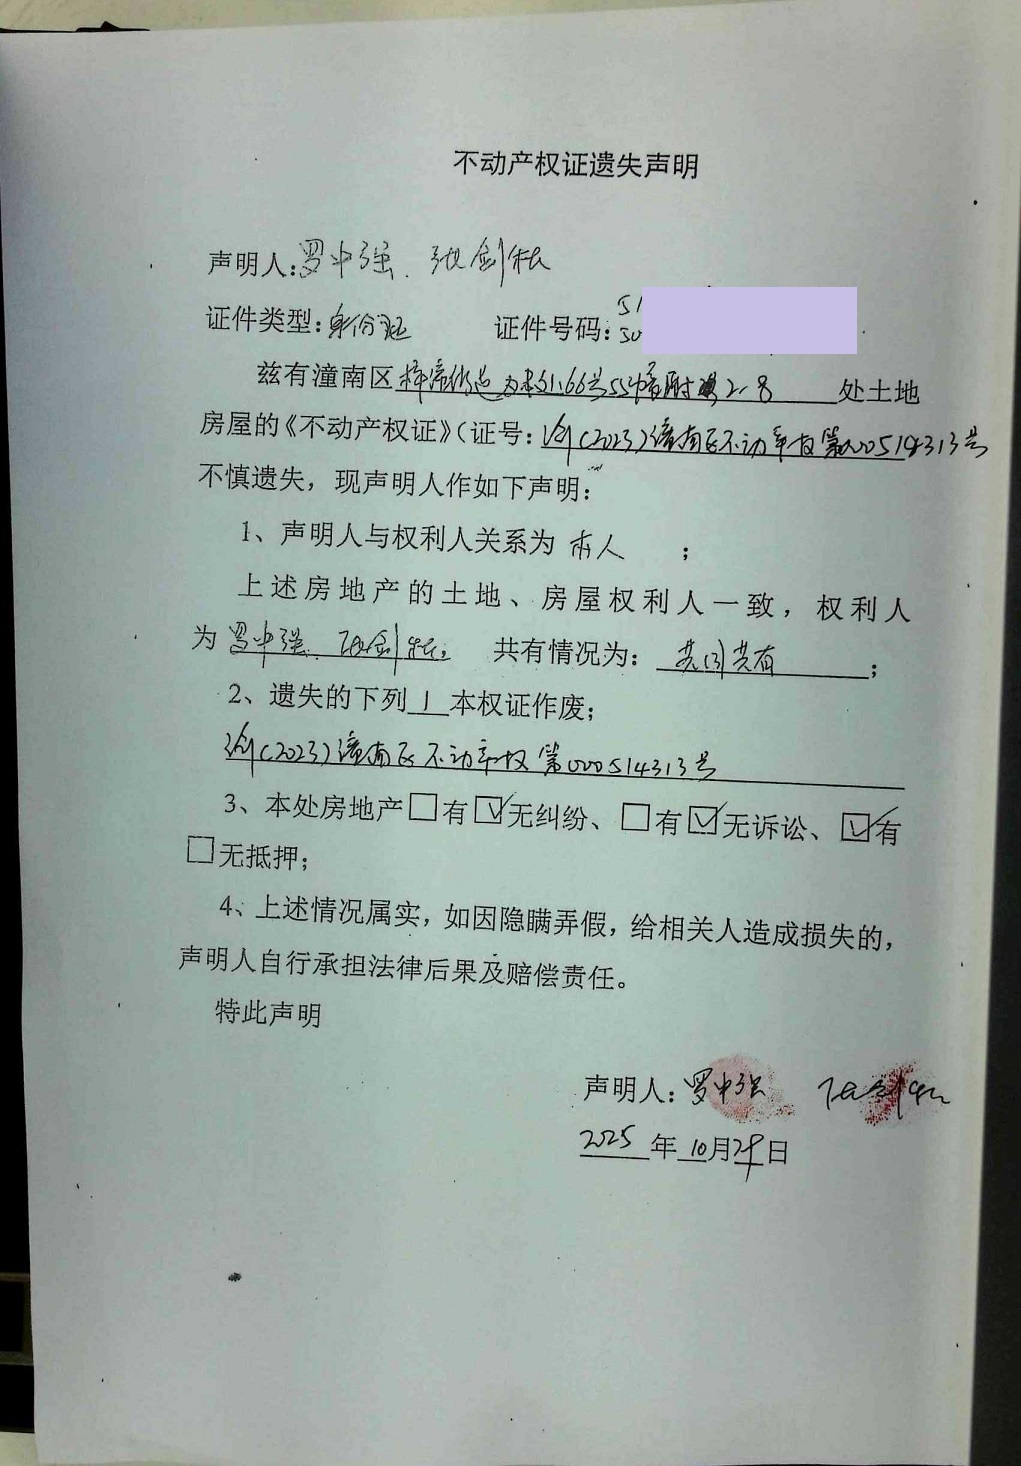 不动产权证遗失声明
声明人:罗中强、张剑
证件类型:身份证 证件号码:51
50
兹有潼南区梓潼街道 166号55幢附 2-8 处土地
房屋的《不动产权证》(证号:渝(2023)潼南区不动产权第000514313号
不慎遗失,现声明人作如下声明:
1、声明人与权利人关系为 本人 ;
上述房地产的土地、房屋权利人一致,权利人
为 罗中强、张剑 共有情况为: 共同共有 ;
2、遗失的下列 1 本权证作废;
渝(2023)潼南区不动产权第000514313号
3、本处房地产□有☑无纠纷、□有☑无诉讼、☑有
□无抵押;
4、上述情况属实,如因隐瞒弄假,给相关人造成损失的,
声明人自行承担法律后果及赔偿责任。
特此声明
声明人:罗中强 张剑
2025 年 10月29日